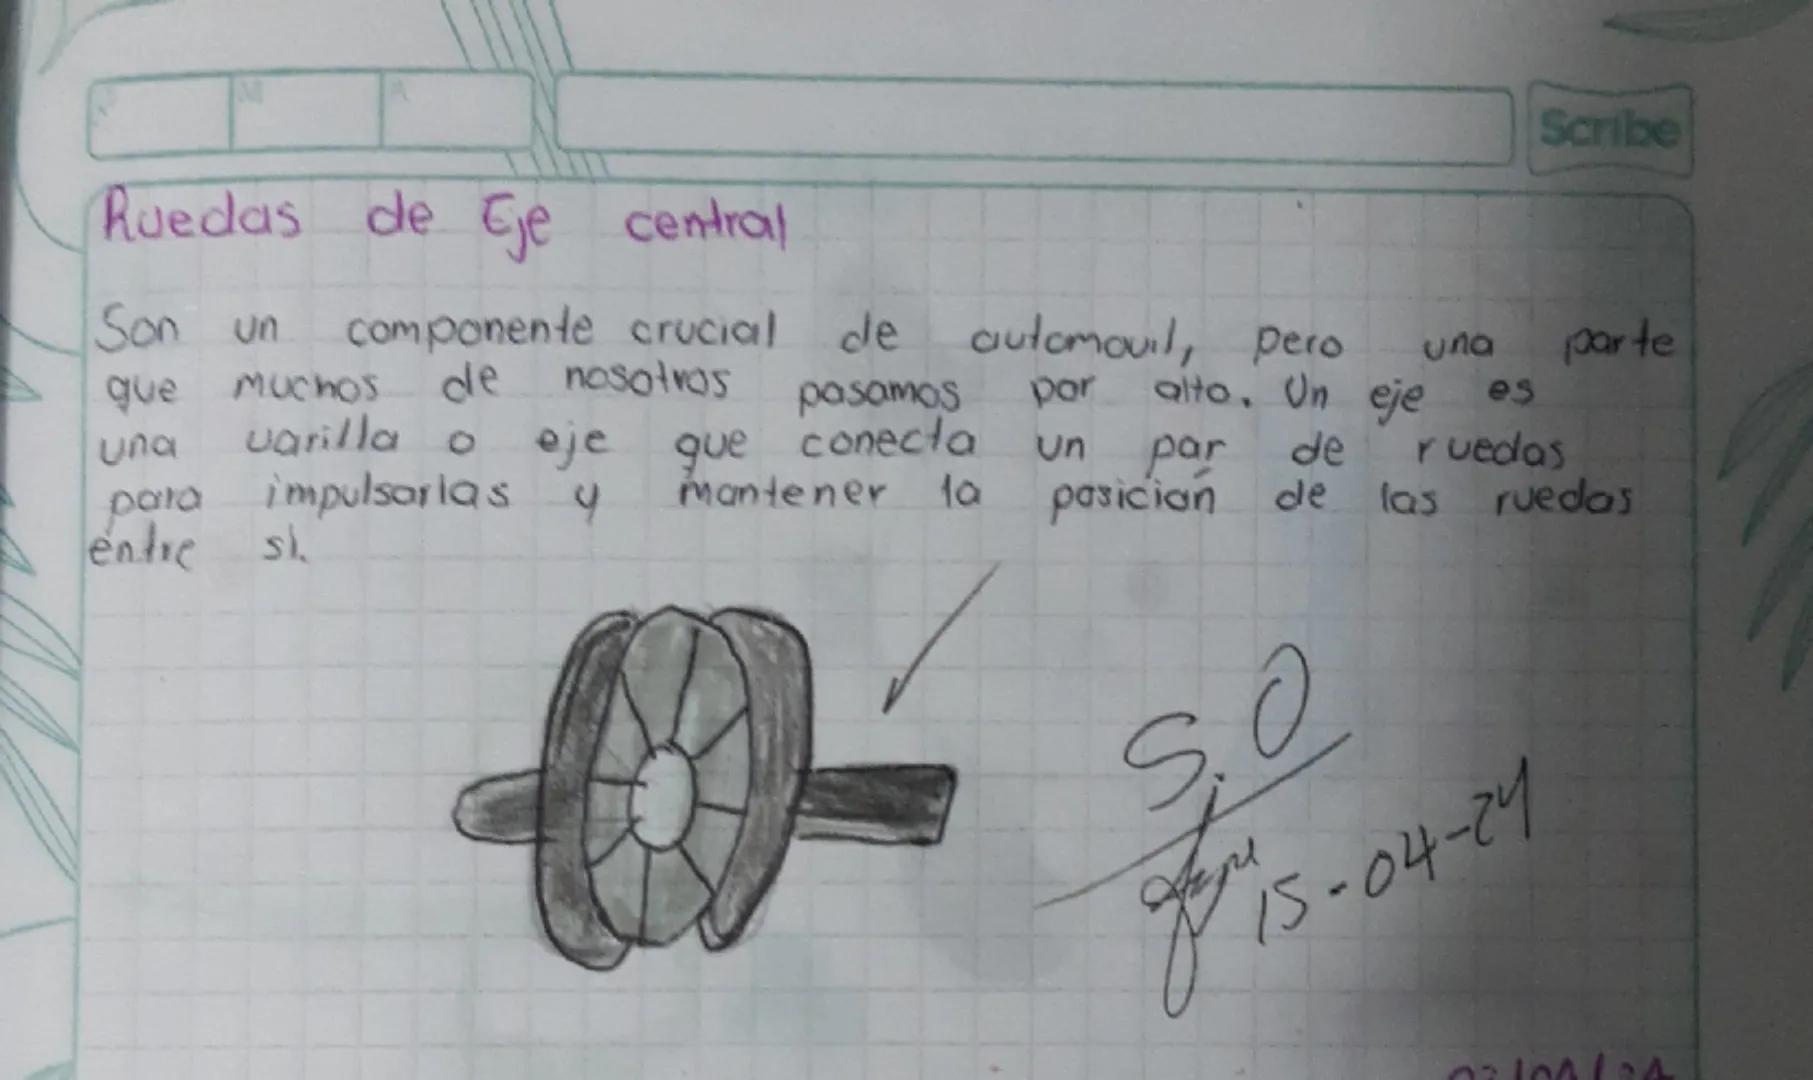 Scribe
Ruedas de Eje central
Son un componente crucial de automovil, pero una parte
que muchos de nosotros pasamos por alto. Un eje es
una varilla o eje que conecta un par de ruedas
para impulsarlas y mantener la posición de las ruedas
entre sí.
5.0
15-04-24